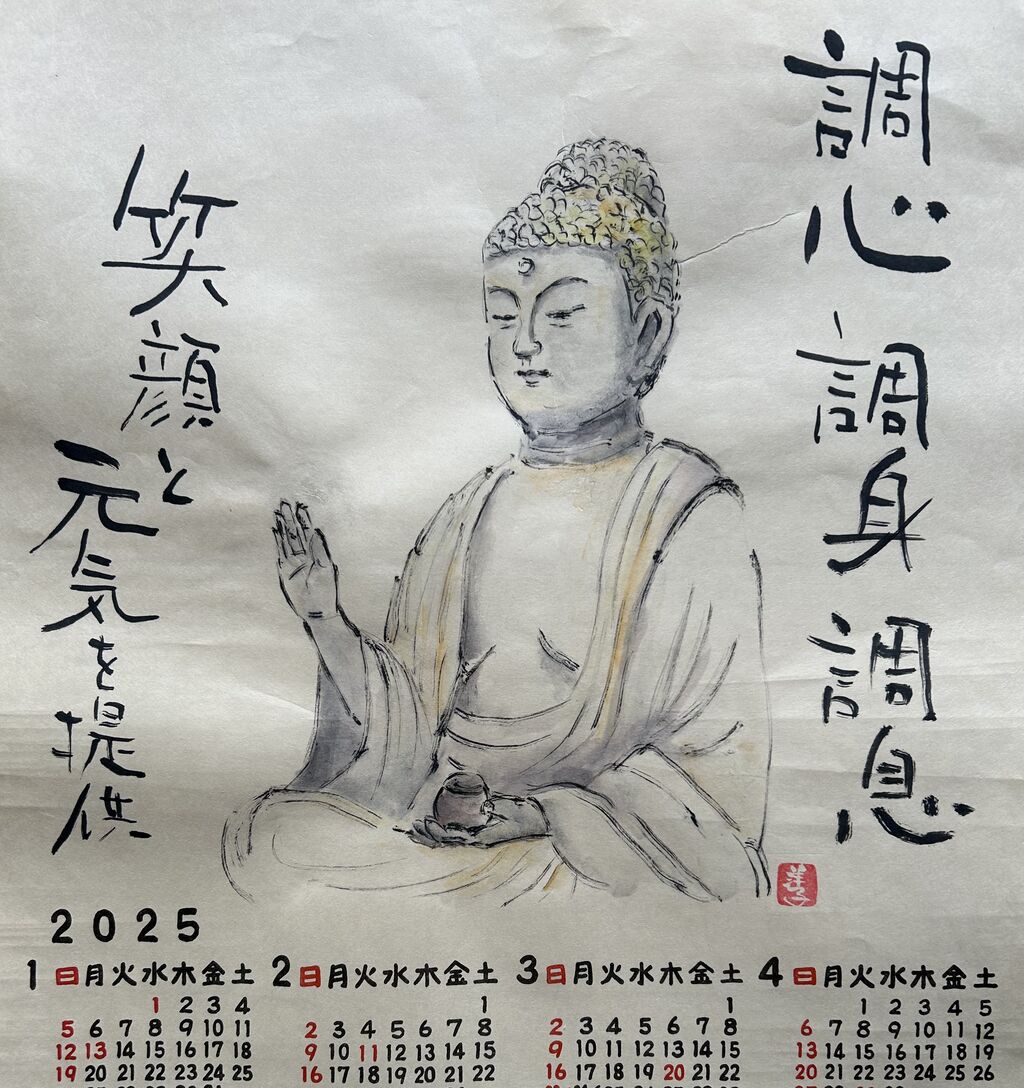 調心 調身 調息
笑顔と
元気を提供
2025
1 日 月 火 水 木 金 土
1 2 3 4
5 6 7 8 9 10 11
12 13 14 15 16 17 18
19 20 21 22 23 24 25
2 日 月 火 水 木 金 土
1
2 3 4 5 6 7 8
9 10 11 12 13 14 15
16 17 18 19 20 21 22
3 日 月 火 水 木 金 土
1
2 3 4 5 6 7 8
9 10 11 12 13 14 15
16 17 18 19 20 21 22
4 日 月 火 水 木 金 土
1 2 3 4 5
6 7 8 9 10 11 12
13 14 15 16 17 18 19
20 21 22 23 24 25 26